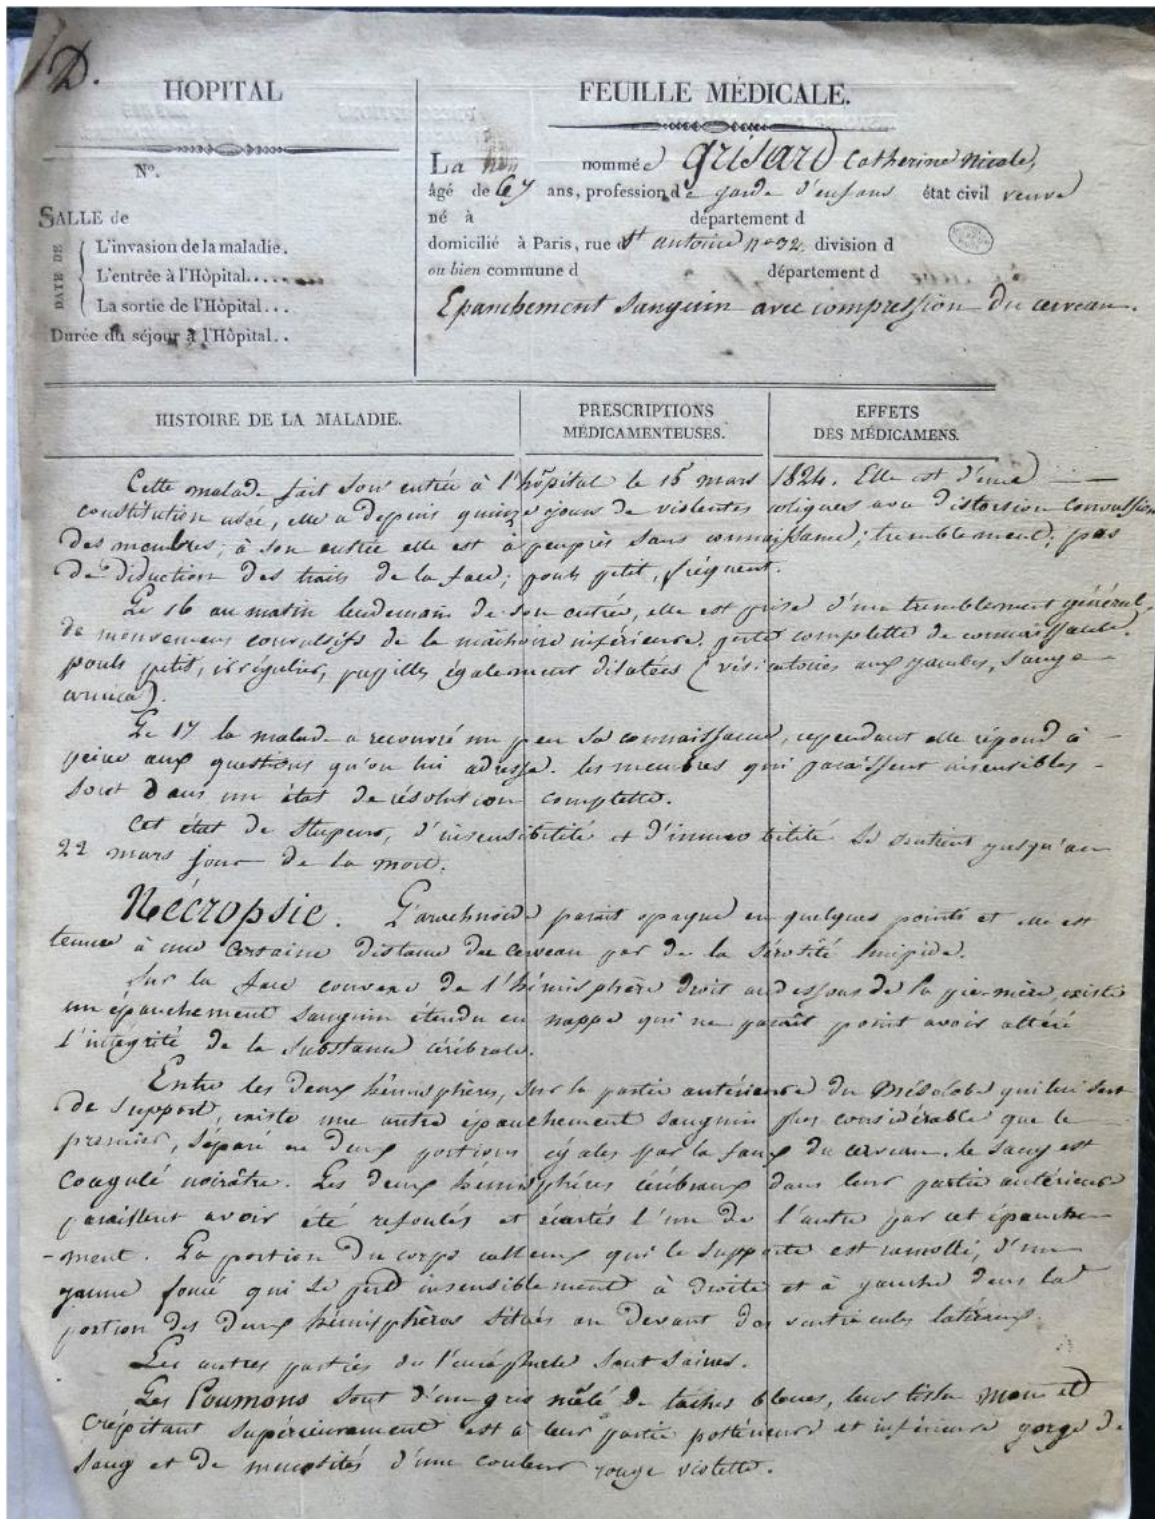 D.
HOPITAL
N°.
SALLE de
DATE DE
L'invasion de la maladie.
L'entrée à l'Hôpital.....
La sortie de l'Hôpital...
Durée du séjour à l'Hôpital..
FEUILLE MÉDICALE.
La nommée Grisard Catherine Nicole,
âgé de 67 ans, profession de garde d'enfans état civil veuve
né à département d
domicilié à Paris, rue St antoine n° 32 division d
ou bien commune d département d
Epanchement sanguin avec compression du cerveau.
HISTOIRE DE LA MALADIE.
PRESCRIPTIONS
MÉDICAMENTEUSES.
EFFETS
DES MÉDICAMENS.
Cette malade fait son entrée à l'hôpital le 15 mars 1824. Elle est d'une
constitution usée, elle a depuis quinze jours de violentes coliques avec distorsion convulsive
des membres; à son entrée elle est à peu près sans connaissance; tremblement; pas
de diduction des traits de la face; pouls petit, fréquent.
Le 16 au matin lendemain de son entrée, elle est prise d'un tremblement général,
de mouvemens convulsifs de la mâchoire inférieure. perte complette de connaissance.
pouls petit, irrégulier, pupilles également dilatées (vésicatoires aux jambes,
arnica).
Le 17 la malade a recouvré un peu sa connaissance, cependant elle répond à
peine aux questions qu'on lui adresse. les membres qui paraissent insensibles
sont dans un état de résolution complette.
Cet état de stupeur, d'insensibilité et d'immobilité se soutient jusqu'au
22 mars jour de la mort.
Nécropsie. L'arachnoïde parait opaque en quelques points et elle est
tenue à une certaine distance du cerveau par de la sérosité limpide.
Sur la face convexe de l'hémisphère droit au dessous de la pie-mère, existe
un épanchement sanguin étendu en nappe qui ne paraît point avoir altéré
l'intégrité de la substance cérébrale.
Entre les deux hémisphères, sur la partie antérieure du Mésolobe qui lui sert
de support, existe une autre épanchement sanguin plus considérable que le
premier, séparé en deux portions égales par la faux du cerveau. le sang est
coagulé noirâtre. Les deux hémisphères cérébraux dans leur partie antérieure
paraissent avoir été refoulés et écartés l'un de l'autre par cet épanche
-ment. La portion du corps calleux qui le supporte est ramollie, d'un
jaune foncé qui se perd insensiblement à droite et à gauche dans la
portion des deux hémisphères situés au devant des ventricules latéraux.
Les autres parties de l'encéphale sont saines.
Les Poumons sont d'un gris mêlé de taches bleues, leur tissu mou et
crépitant supérieurement est à leur partie postérieure et inférieure gorgé de
sang et de mucosités d'une couleur rouge violette.